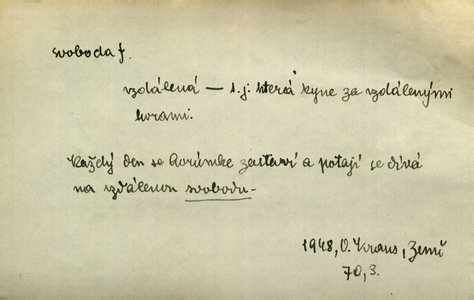 svoboda f.
vzdálená — t. j. která kyne za vzdálenými
horami.
Každý den se zastaví a potají se dívá
na vzdálenou svobodu -
1948, O. Kraus, Země
70, 3.